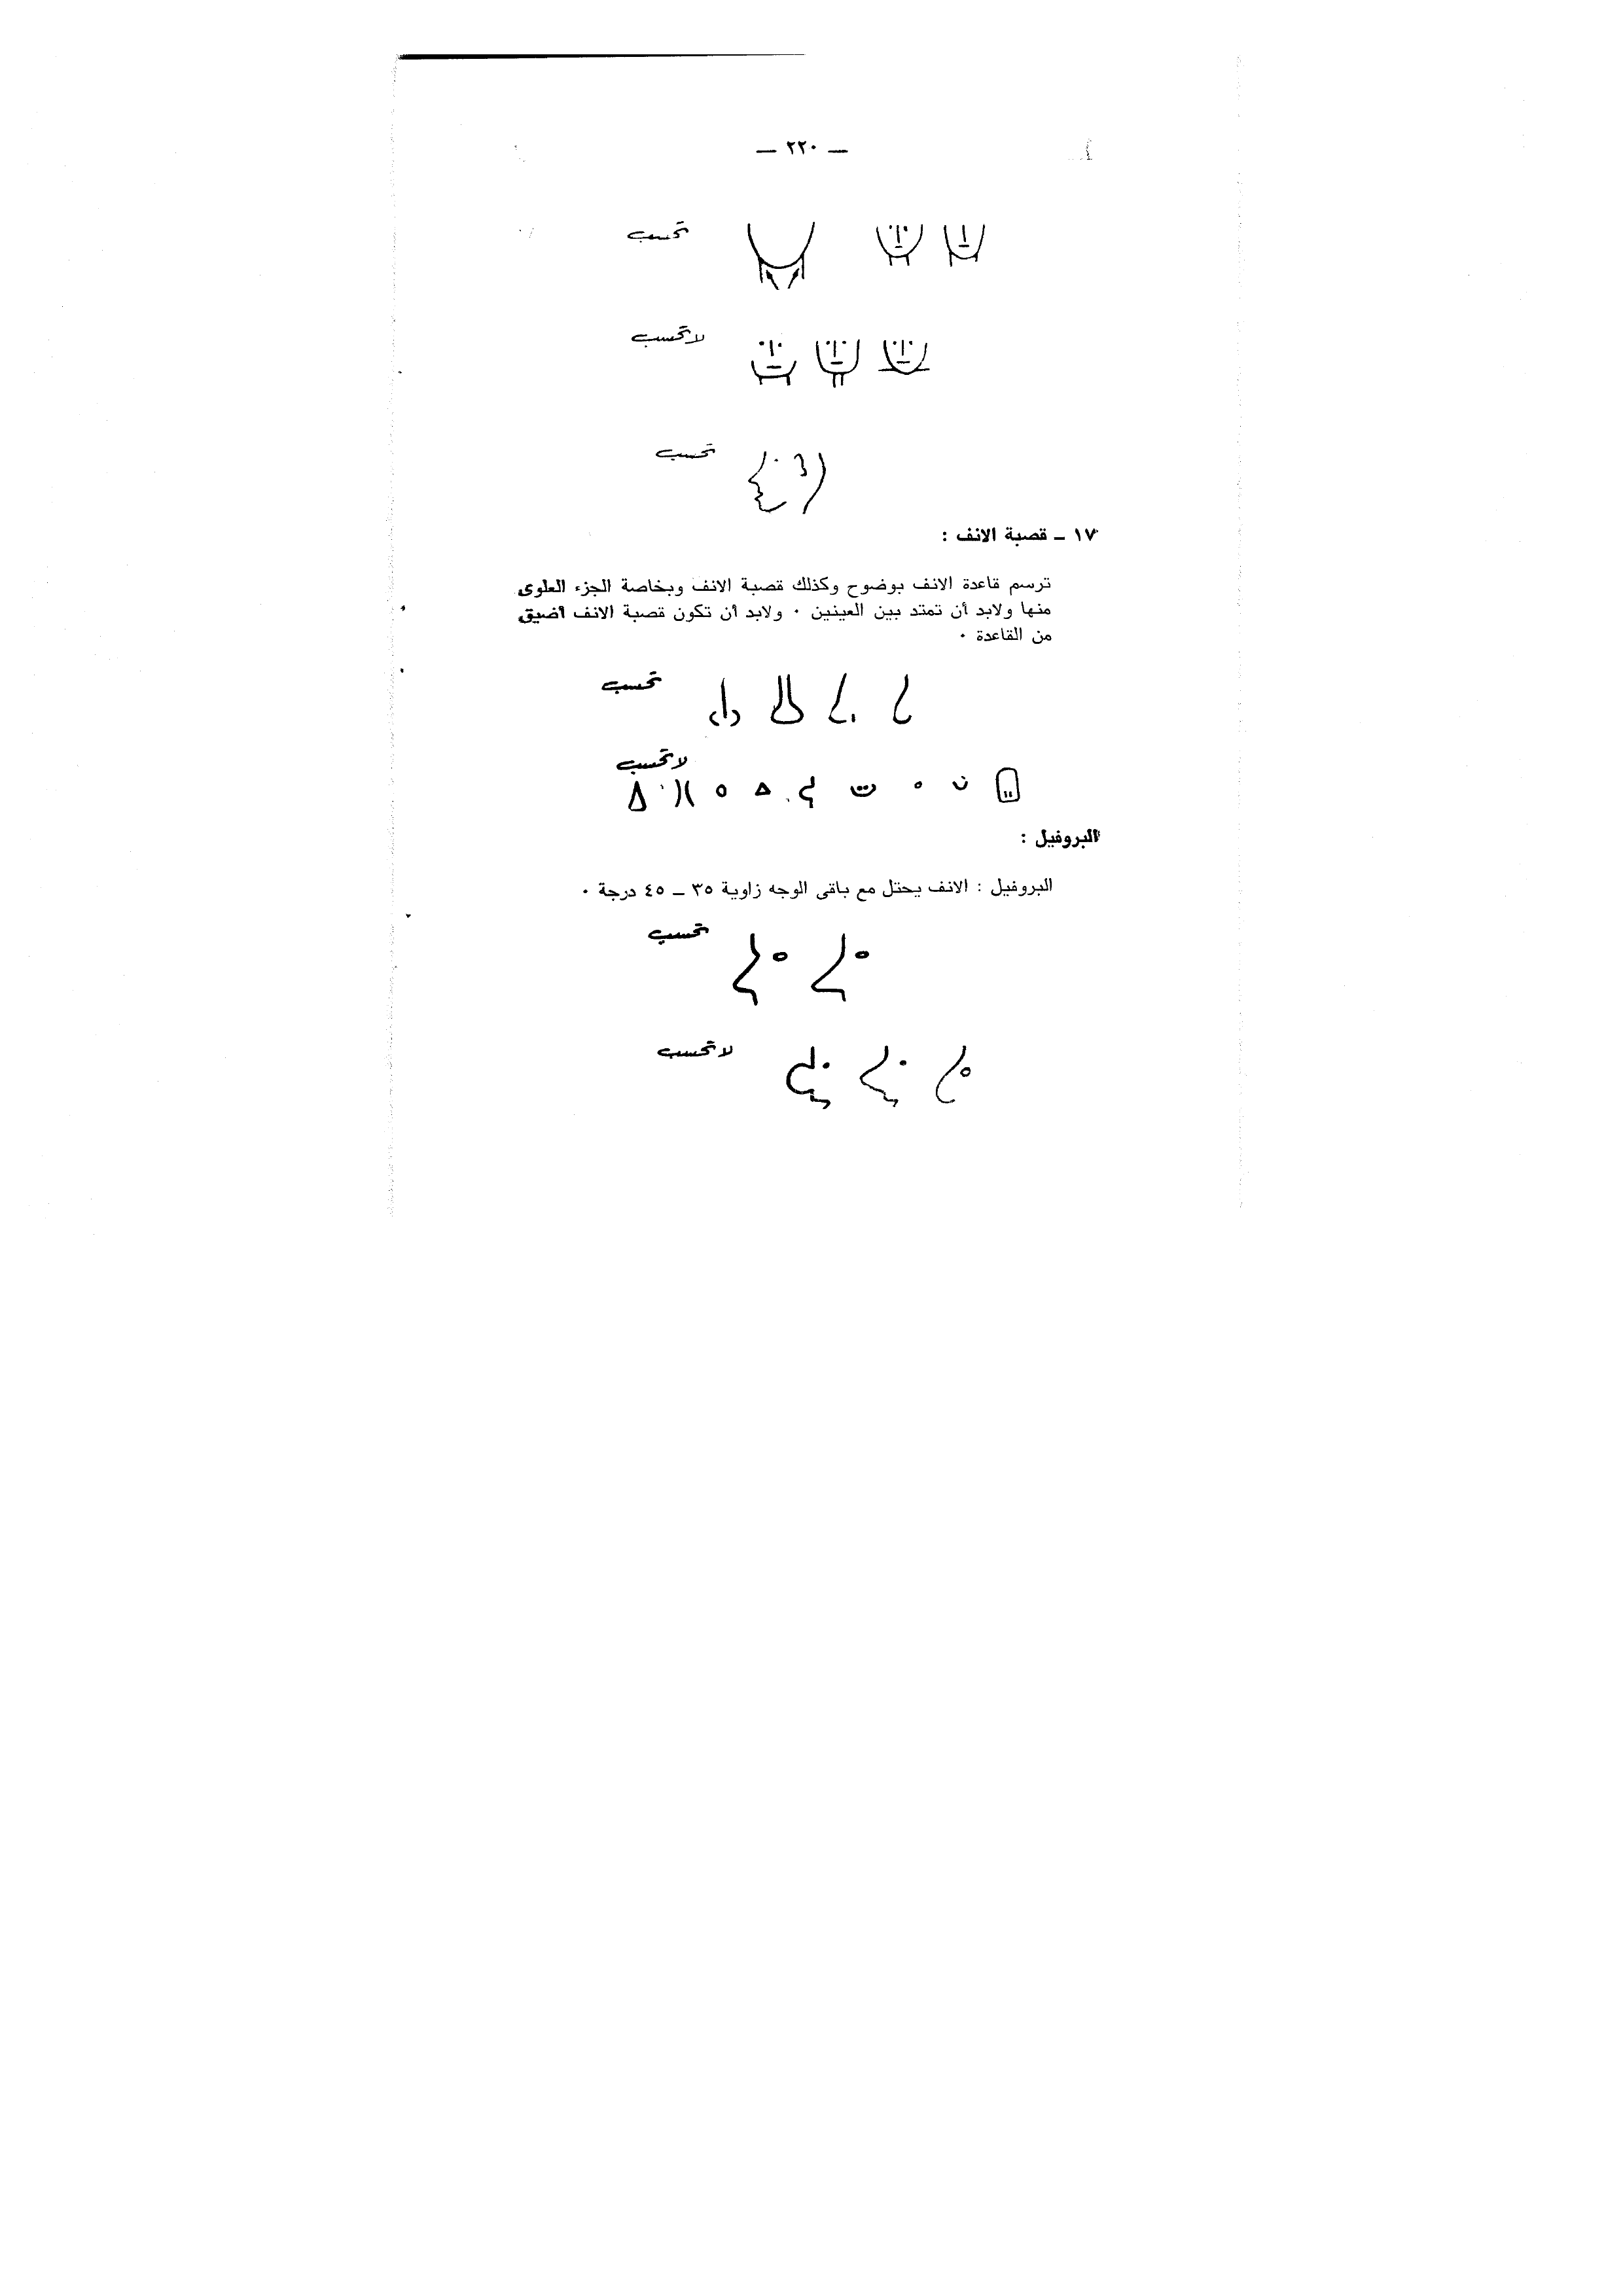 — ٢٢٠ —
تحسب
لا تحسب
تحسب
١٧ ـ قصبة الانف :
ترسم قاعدة الانف بوضوح وكذلك قصبة الانف وبخاصة الجزء العلوى
منها ولابد أن تمتد بين العينين ٠ ولابد أن تكون قصبة الانف أضيق
من القاعدة ٠
تحسب
لا تحسب
البروفيل :
البروفيل : الانف يحتل مع باقى الوجه زاوية ٣٥ ـ ٤٥ درجة ٠
تحسب
لا تحسب